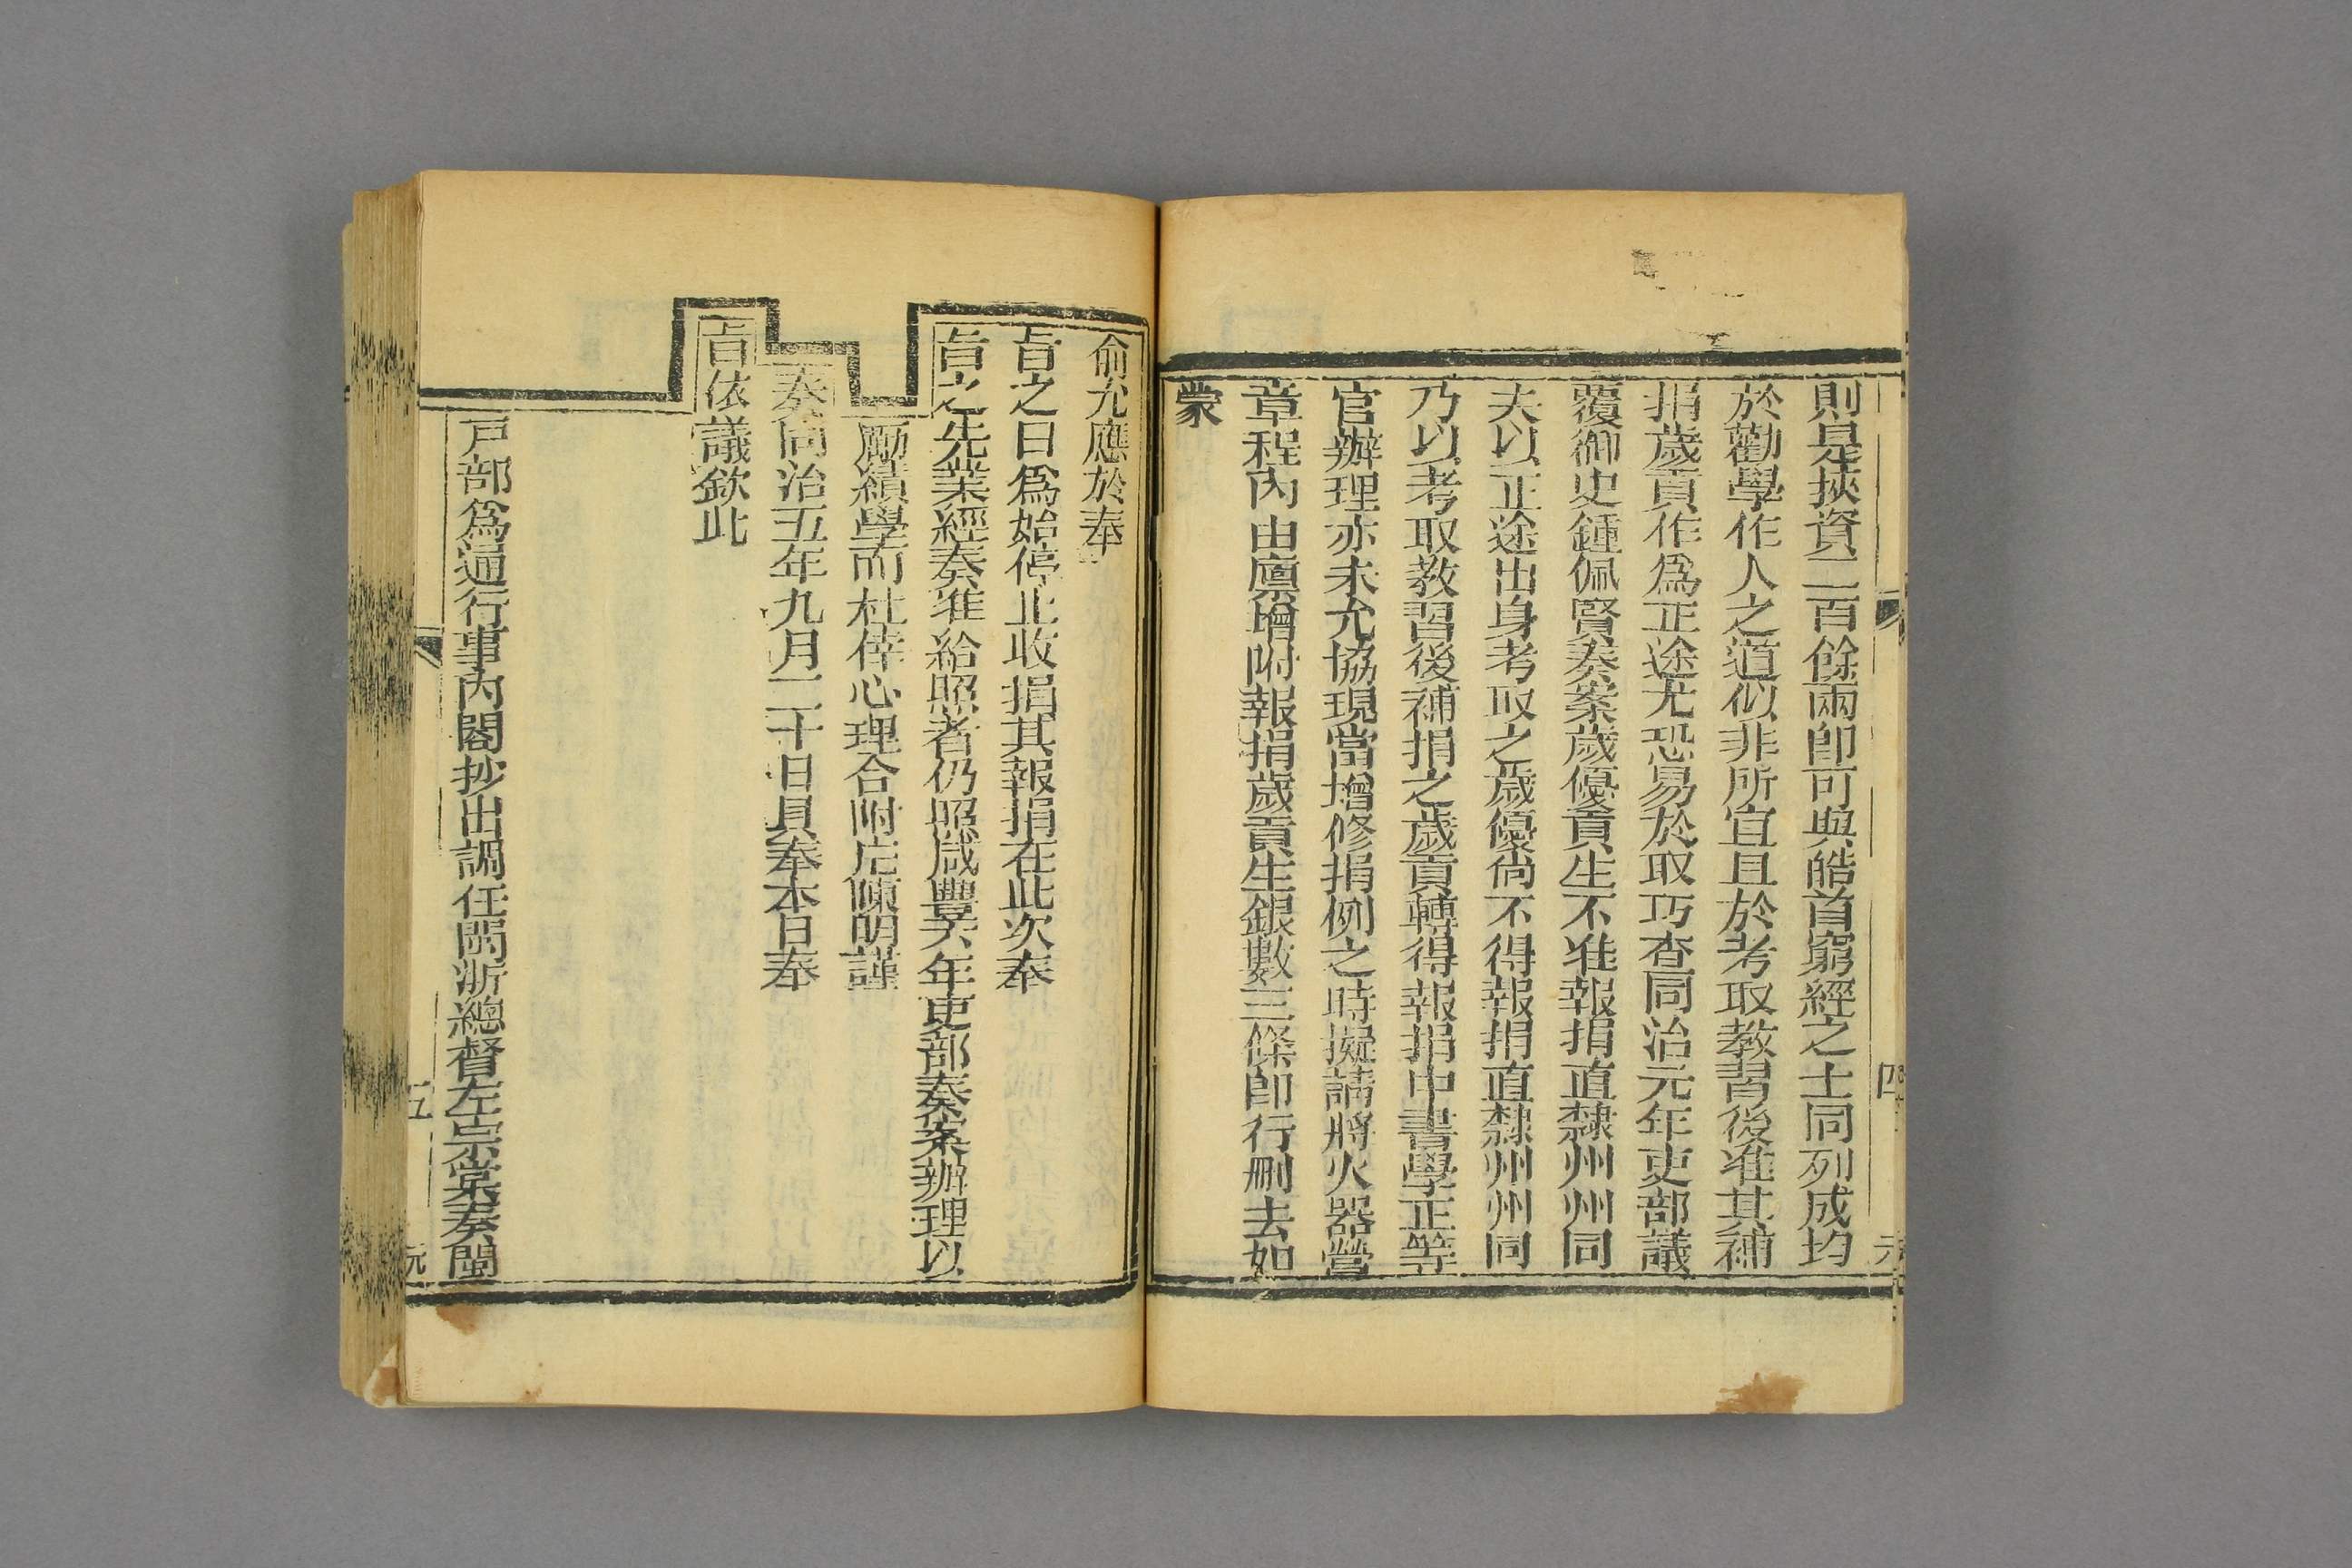 則是挾資二百餘兩卽可與皓首窮經之士同列成均
於勸學作人之道似非所宜且於考取教習後准其補
捐歲貢作爲正途尤恐易於取巧查同治元年吏部議
覆御史鍾佩賢奏案歲優貢生不准報捐直隸州州同
夫以正途出身考取之歲優尙不得報捐直隸州州同
乃以考取教習後補捐之歲貢轉得報捐中書學正等
官辦理亦未允協現當增修捐例之時擬請將火器營
章程內由廩增附報捐歲貢生銀數三條卽行刪去如
蒙
四
俞允應於奉
旨之日爲始停止收捐其報捐在此次奉
旨之先業經奏准給照者仍照咸豐六年吏部奏案辦理以
勵績學而杜倖心理合附片陳明謹
奏同治五年九月二十日具奏本日奉
旨依議欽此
戶部爲通行事內閣抄出調任閩浙總督左宗棠奏閩
五